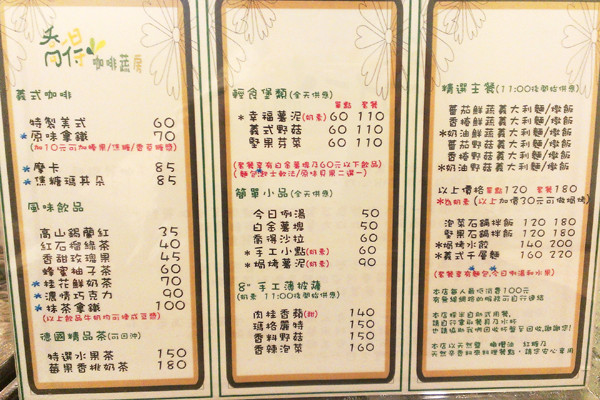 喬得 咖啡蔬房
義式咖啡
特製美式 60
*原味拿鐵 70
(加10元可加榛果/焦糖/香草糖漿)
*摩卡 85
*焦糖瑪其朵 85
風味飲品
高山錫蘭紅 35
紅石榴綠茶 40
香甜玫瑰果 45
蜂蜜柚子茶 60
*桂花鮮奶茶 70
*濃情巧克力 90
*抹茶拿鐵 100
(以上飲品牛奶均可換成豆漿)
德國精品茶(可回沖)
特選水果茶 150
莓果香桃奶茶 180
輕食堡類(全天供應)
單點 套餐
*幸福薯泥(奶素) 60 110
義式野菇 60 110
堅果芽菜 60 110
(套餐享有白金薯塊及60元以下飲品)
簡單小品(全天供應)
今日例湯 50
白金薯塊 50
喬得沙拉 60
*手工小點(奶素) 60
*焗烤薯泥(奶素) 90
8" 手工薄披薩
(奶素 11:00後開始供應)
肉桂香蘋(甜) 140
瑪格麗特 150
香料野菇 150
香辣泡菜 160
精選主餐(11:00後開始供應)
蕃茄鮮蔬義大利麵/燉飯
香椿鮮蔬義大利麵/燉飯
*奶油鮮蔬義大利麵/燉飯
蕃茄野菇義大利麵/燉飯
香椿野菇義大利麵/燉飯
*奶油野菇義大利麵/燉飯
以上價格單點120 套餐180
*為奶素(以上加價30元可做焗烤)
泡菜石鍋拌飯 120 180
堅果石鍋拌飯 120 180
*焗烤水餃 140 200
*義式千層麵 160 220
(套餐享有麵包,今日例湯和水果)
本店每人最低消費100元